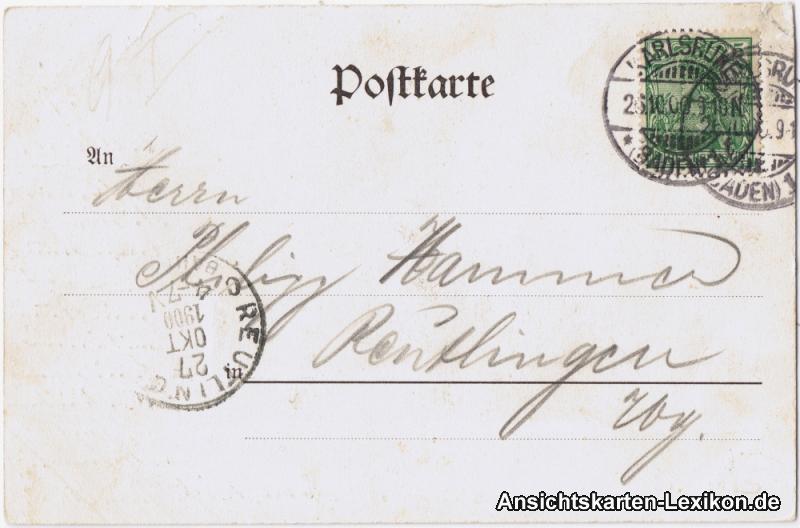 Postkarte
An
Herrn
Philipp Hammer
Reutlingen
in
Wbg.
KARLSRUHE
26.10.00 9-10N
(BADEN) 1.
REUTLINGEN
27
OKT
1900
Ansichtskarten-Lexikon.de